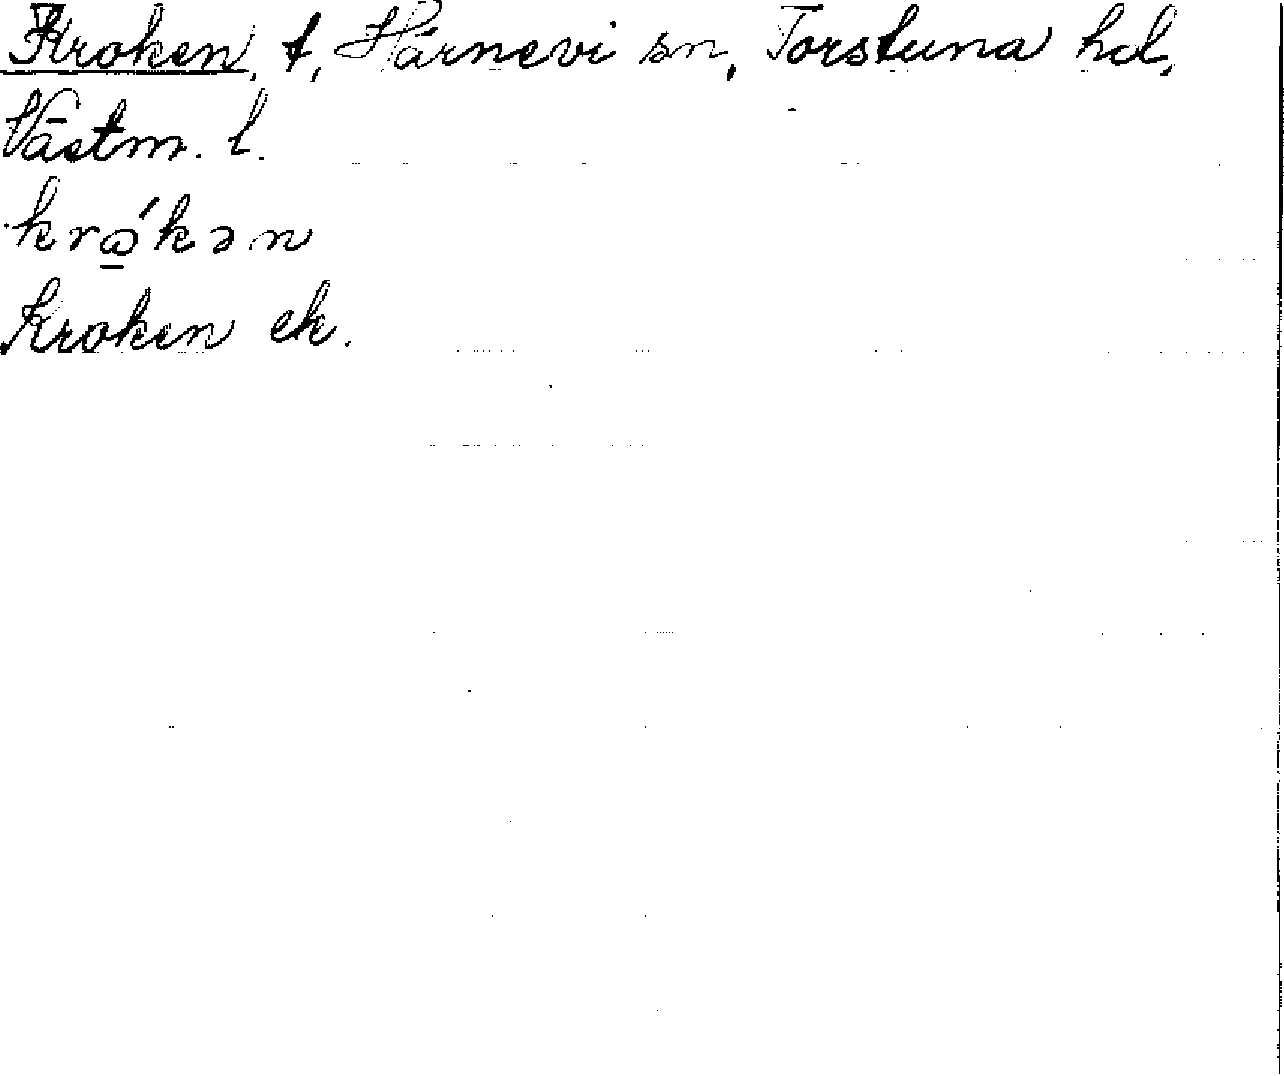 Kroken, t, Härnevi sn, Torstuna hd,
Västm. l.
krώ̱kən
Kroken ek.